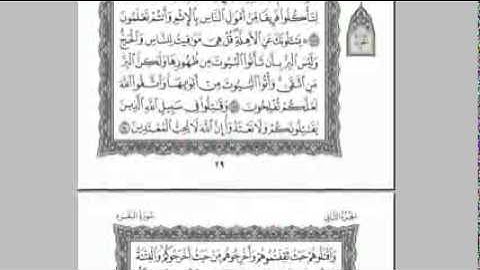 لِتَأْكُلُوا۟ فَرِيقًا مِّنْ أَمْوَٰلِ ٱلنَّاسِ بِٱلْإِثْمِ وَأَنتُمْ تَعْلَمُونَ
۞ يَسْـَٔلُونَكَ عَنِ ٱلْأَهِلَّةِ قُلْ هِىَ مَوَٰقِيتُ لِلنَّاسِ وَٱلْحَجِّ
وَلَيْسَ ٱلْبِرُّ بِأَن تَأْتُوا۟ ٱلْبُيُوتَ مِن ظُهُورِهَا وَلَٰكِنَّ ٱلْبِرَّ
مَنِ ٱتَّقَىٰ وَأْتُوا۟ ٱلْبُيُوتَ مِنْ أَبْوَٰبِهَا وَٱتَّقُوا۟ ٱللَّهَ
لَعَلَّكُمْ تُفْلِحُونَ وَقَٰتِلُوا۟ فِى سَبِيلِ ٱللَّهِ ٱلَّذِينَ
يُقَٰتِلُونَكُمْ وَلَا تَعْتَدُوٓا۟ إِنَّ ٱللَّهَ لَا يُحِبُّ ٱلْمُعْتَدِينَ
٢٩
الجزء الثاني
سورة البقرة
وَٱقْتُلُوهُمْ حَيْثُ ثَقِفْتُمُوهُمْ وَأَخْرِجُوهُم مِّنْ حَيْثُ أَخْرَجُوكُمْ وَٱلْفِتْنَةُ